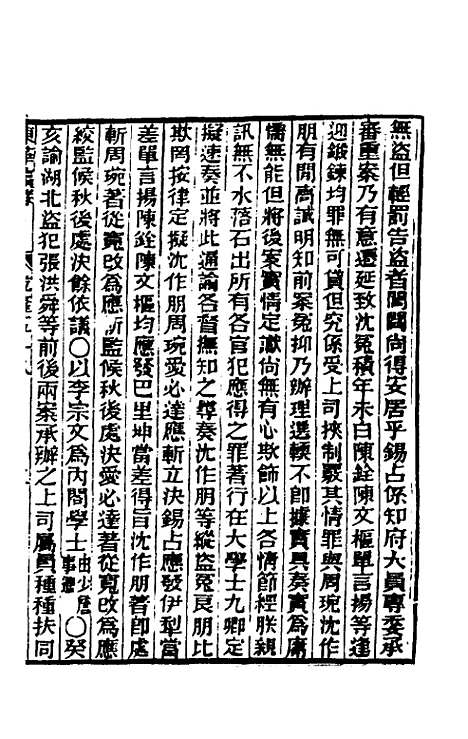 無盜但輕罰告盜者閭閻尚得安居乎錫占係知府大員專委承
審重案乃有意遷延致沈冤積年未白陳銓陳文樞單言揚等逢
迎鍛鍊均罪無可貸但究係受上司挾制覈其情罪與周琬沈作
朋有間高誠明知前案冤抑乃辦理選輭不卽據實具奏實爲庸
懦無能但將後案實情定讞尚無有心欺飾以上各情節經朕親
訊無不水落石出所有各官犯應得之罪著行在大學士九卿定
擬速奏並將此通諭各督撫知之尋奏沈作朋等縱盜冤良朋比
欺罔按律定擬沈作朋周琬愛必達應斬立決錫占應發伊犁當
差單言揚陳銓陳文樞均應發巴里坤當差得旨沈作朋著卽處
斬周琬著從寬改爲應斬監候秋後處決愛必達著從寬改爲應
絞監候秋後處決餘依議〇以李宗文爲內閣學士由少詹事遷〇癸
亥諭湖北盜犯張洪舜等前後兩案承辦之上司屬員種種扶同